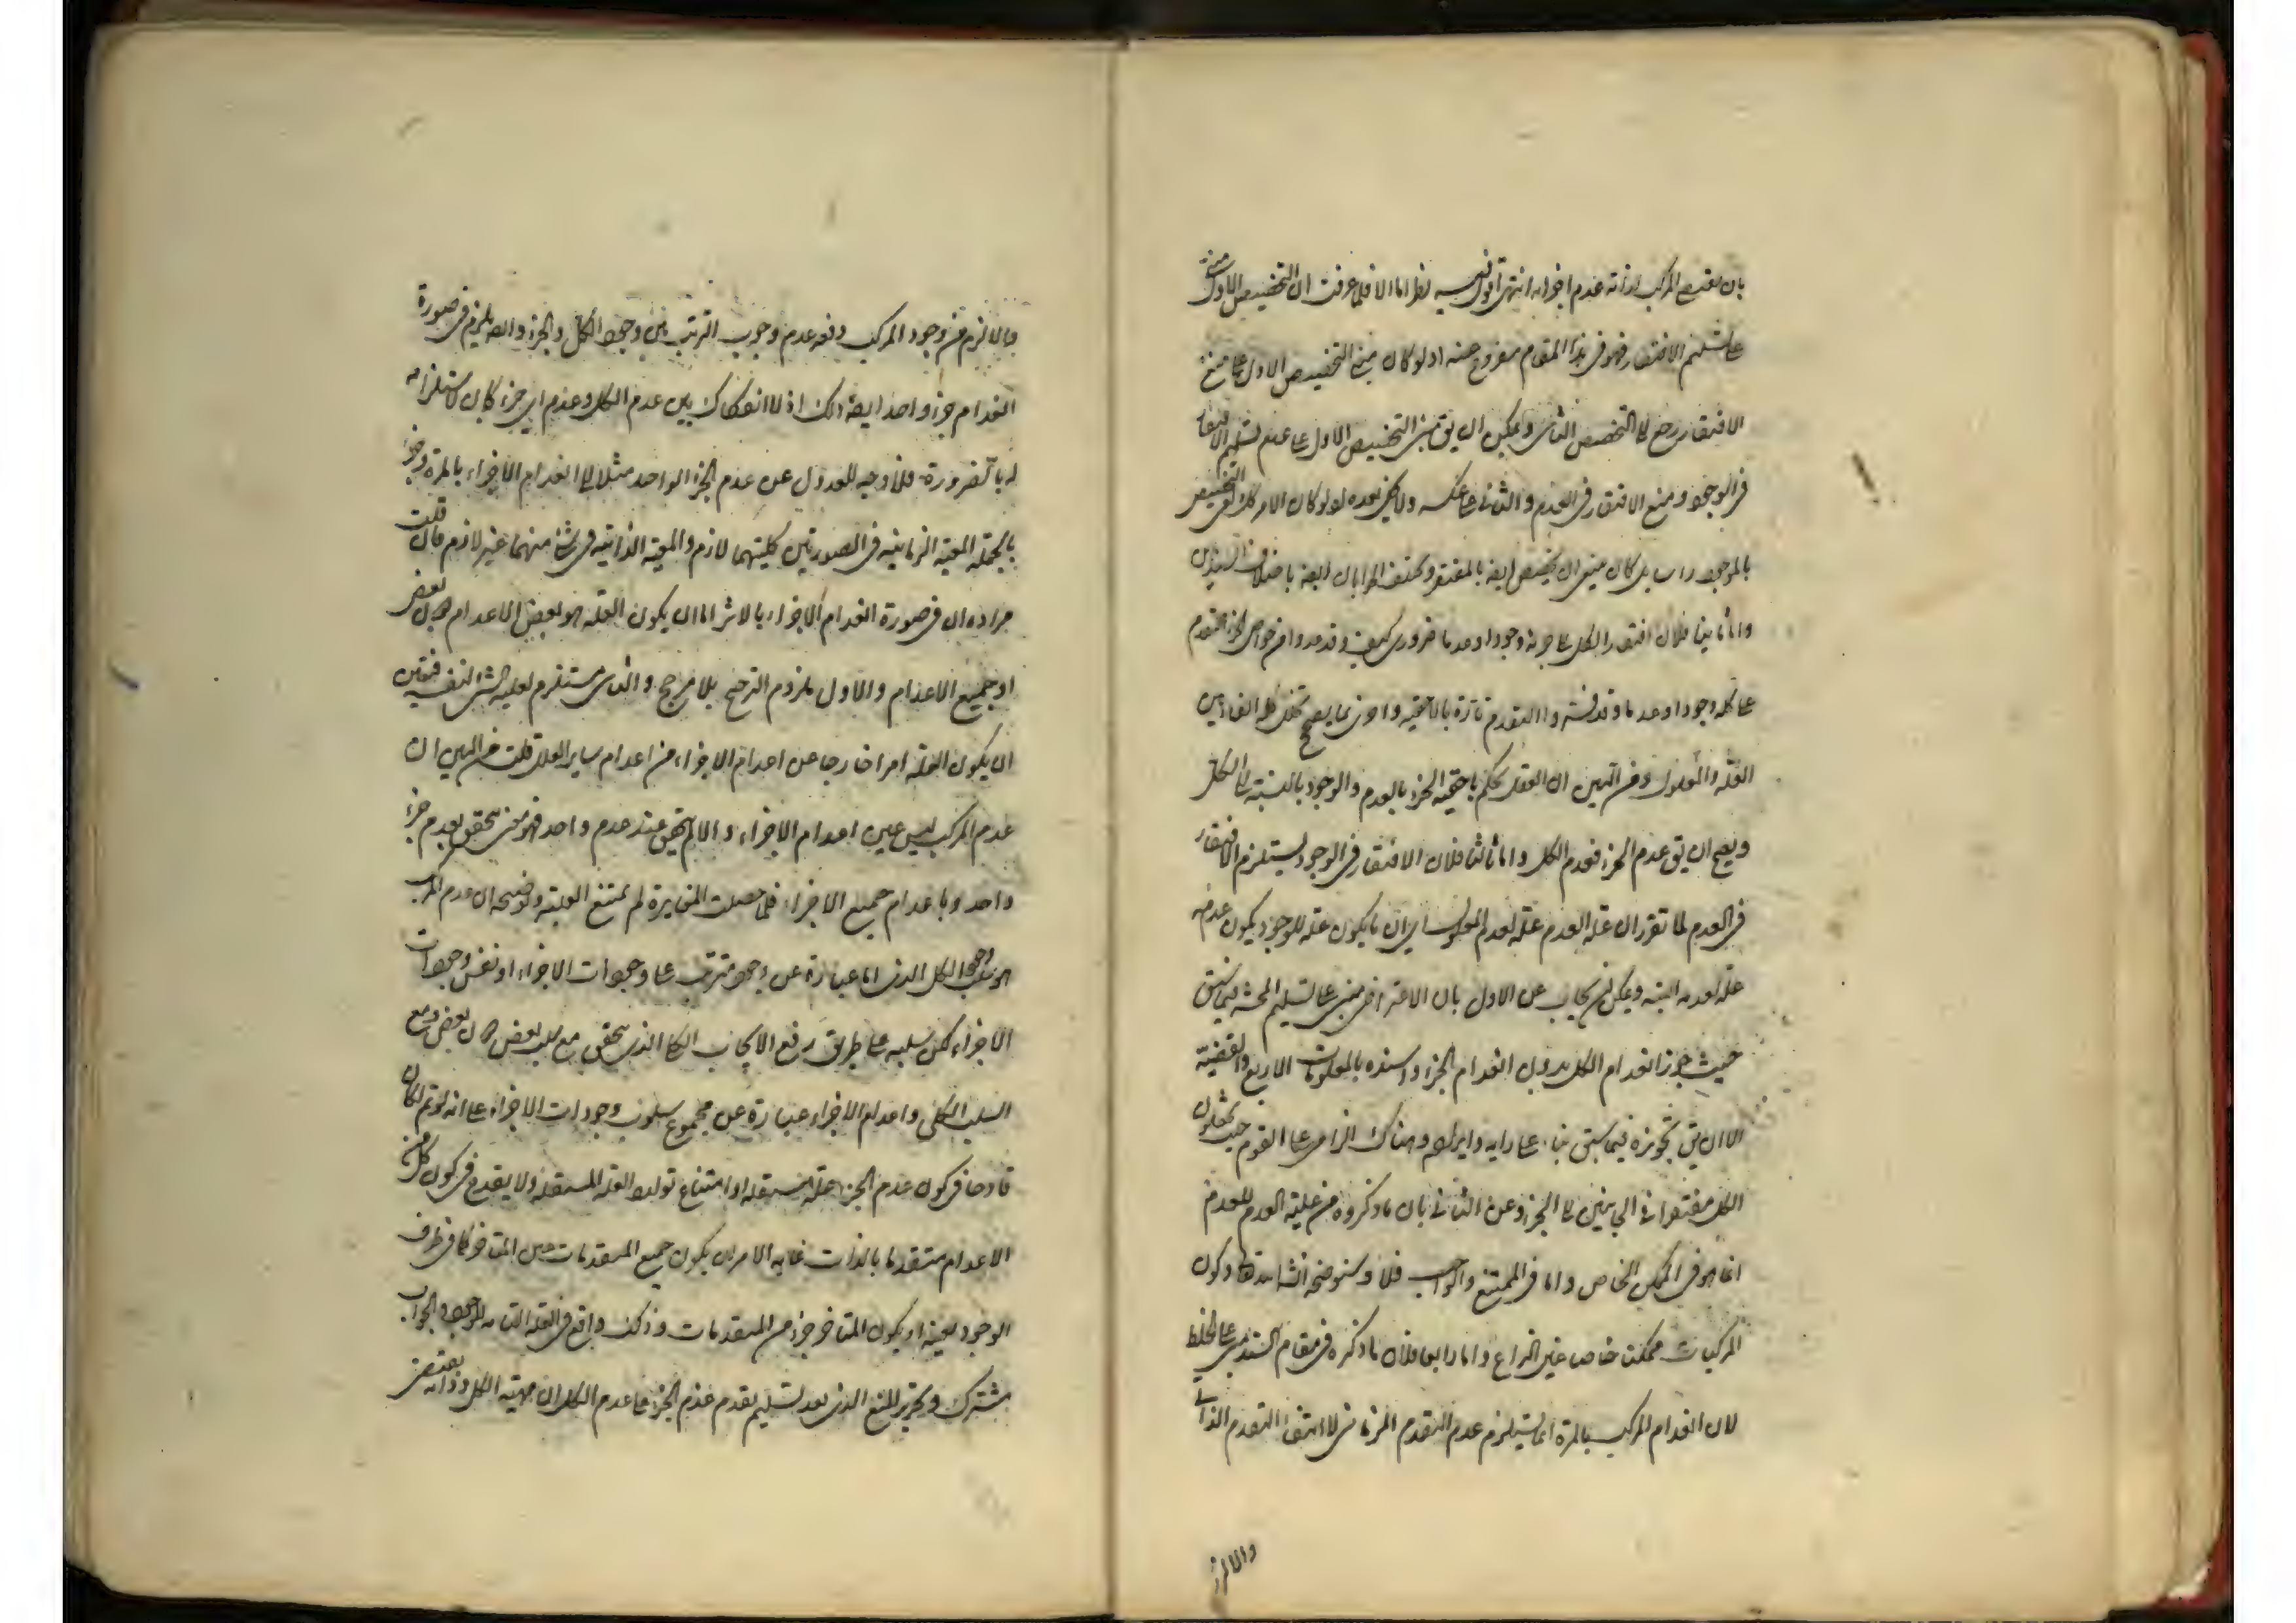 بان يقتضى المركب لذاته عدم اجزائه انتهى اقول فيه نظر اما اولا فلما عرفت ان التخصيص الاول مبنى
على تسليم الافتقار فهو فى هذا المقام مفروغ عنه اذ لو كان مبنى التخصيص الاول على منع
الافتقار رجع الى التخصيص الثانى ويمكن ان يق مبنى التخصيص الاول على عدم تسليم الافتقار
فى الوجود ومنع الافتقار فى العدم والثانى على عكسه ولا يخفى بعده لو كان الامر كذلك التخصيص
بالموجود راسا بل كان ينبغى ان يخصص ايضا بالمفتقر
واما ثانيا فلان افتقار الكل الى جزئه وجودا وعدما ضرورى كيف وقد عدوا من خواص الجزء تقدم
على كله وجودا وعدما وقد فسروا التقدم تارة بالاحقية واخرى بما يصح تخلل الفاء بين
العلة والمعلول ومن البين ان العقل يحكم باحقية الجزء بالعدم والوجود بالنسبة الى الكل
ويصح ان يق عدم الجزء فعدم الكل واما ثالثا فلان الافتقار فى الوجود يستلزم الافتقار
فى العدم لما تقرر ان علة العدم علة لعدم المعلول اى ان ما يكون علة للوجود يكون عدمه
علة لعدمه البتة ويمكن ان يجاب عن الاول بان الاعتراض مبنى على تسليم المحشى فيما سبق
حيث جوز انعدام الكل بدون انعدام الجزء واسنده بالمعلومات الاربع والقضية
الا ان يق تجويزه فيما سبق بناء على رايه وايراده هناك الزامى على القوم حيث يجعلون
الكل مفتقرا فى الجانبين الى الجزء وعن الثانى بان ما ذكروه من علية العدم للعدم
انما هو فى الممكن الخاص واما فى الممتنع والواجب فلا وسنوضحه انشاء الله تعالى وكون
المركبات ممكنات خاصا عين النزاع واما رابعا فلان ما ذكره فى مقام السند مبنى على الخلط
لان انعدام المركب بالمرة انما يستلزم عدم التقدم الزمانى لا انتفاء التقدم الذاتى
والا لزم
والا لزم من وجود المركب دفعة عدم وجوب الترتب بين وجود الكل والجزء وايضا يلزم فى صورة
انعدام جزء واحد ايضا ذلك اذ لا انفكاك بين عدم الكل وعدم اى جزء كان لاستلزامه
له بالضرورة فلا وجه للعدول عن عدم الجزء الواحد مثلا الى انعدام الاجزاء بالمرة
بالجملة المعية الزمانية فى الصورتين كليتهما لازم والمعية الذاتية فى شئ منهما غير لازم فان قلت
مراده ان فى صورة انعدام الاجزاء بالاثر اما ان يكون العلة هو بعض الاعدام دون بعض
او جميع الاعدام والاول ملزوم الترجيح بلا مرجح والثانى مستلزم لعلية الشئ لنفسه فتعين
ان يكون العلة امرا خارجا عن اعدام الاجزاء من اعدام ساير العلل قلت من البين ان
عدم المركب ليس عين اعدام الاجزاء والا لم يتحقق عند عدم واحد فهو معنى يتحقق بعدم جزء
واحد وباعدام جميع الاجزاء فلما حصلت المغايرة لم يمتنع العلية وتوضيحه ان عدم المركب
هو سلب وجود الكل الذى اما عبارة عن وجود مترتب على وجودات الاجزاء او نفس وجودات
الاجزاء لكن سلبه على طريق رفع الايجاب الكلى الذى يتحقق مع سلب بعض دون بعض ومع
السلب الكلى واعدام الاجزاء عبارة عن مجموع سلوب وجودات الاجزاء على انه لو تم لكان
قادحا فى كون عدم الجزء علة مستقلة او امتناع توارد العلة المستقلة ولا يقدح فى كون كل من
الاعدام متقدما بالذات غاية الامر ان يكون جميع المتقدمات عين المتاخر كما فى طرف
الوجود بعينه او يكون المتاخر جزء من المتقدمات وذلك واقع فى العلة التامة للوجود والجواب
مشترك وتحرير المنع الذى بعد تسليم تقدم عدم الجزء على عدم الكل ان مهية الكل وذاته يقتضى